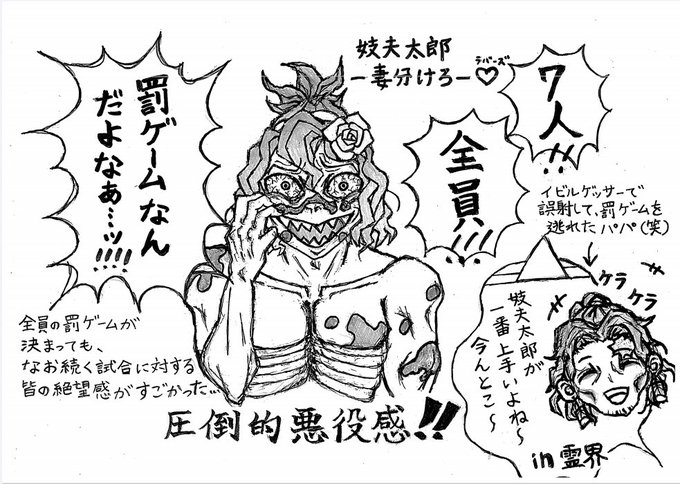 妓夫太郎
ー妻分けろー♡
ラバーズ
7人!!
全員!!!
罰ゲームなん
だよなぁ…ッ!!!!
イビルゲッサーで
誤射して、罰ゲームを
逃れたパパ(笑)
ケラ
ケラ
妓夫太郎が
一番上手いよね〜
今んとこ〜
in霊界
全員の罰ゲームが
決まっても、
なお続く試合に対する
皆の絶望感がすごかった…
圧倒的悪役感!!